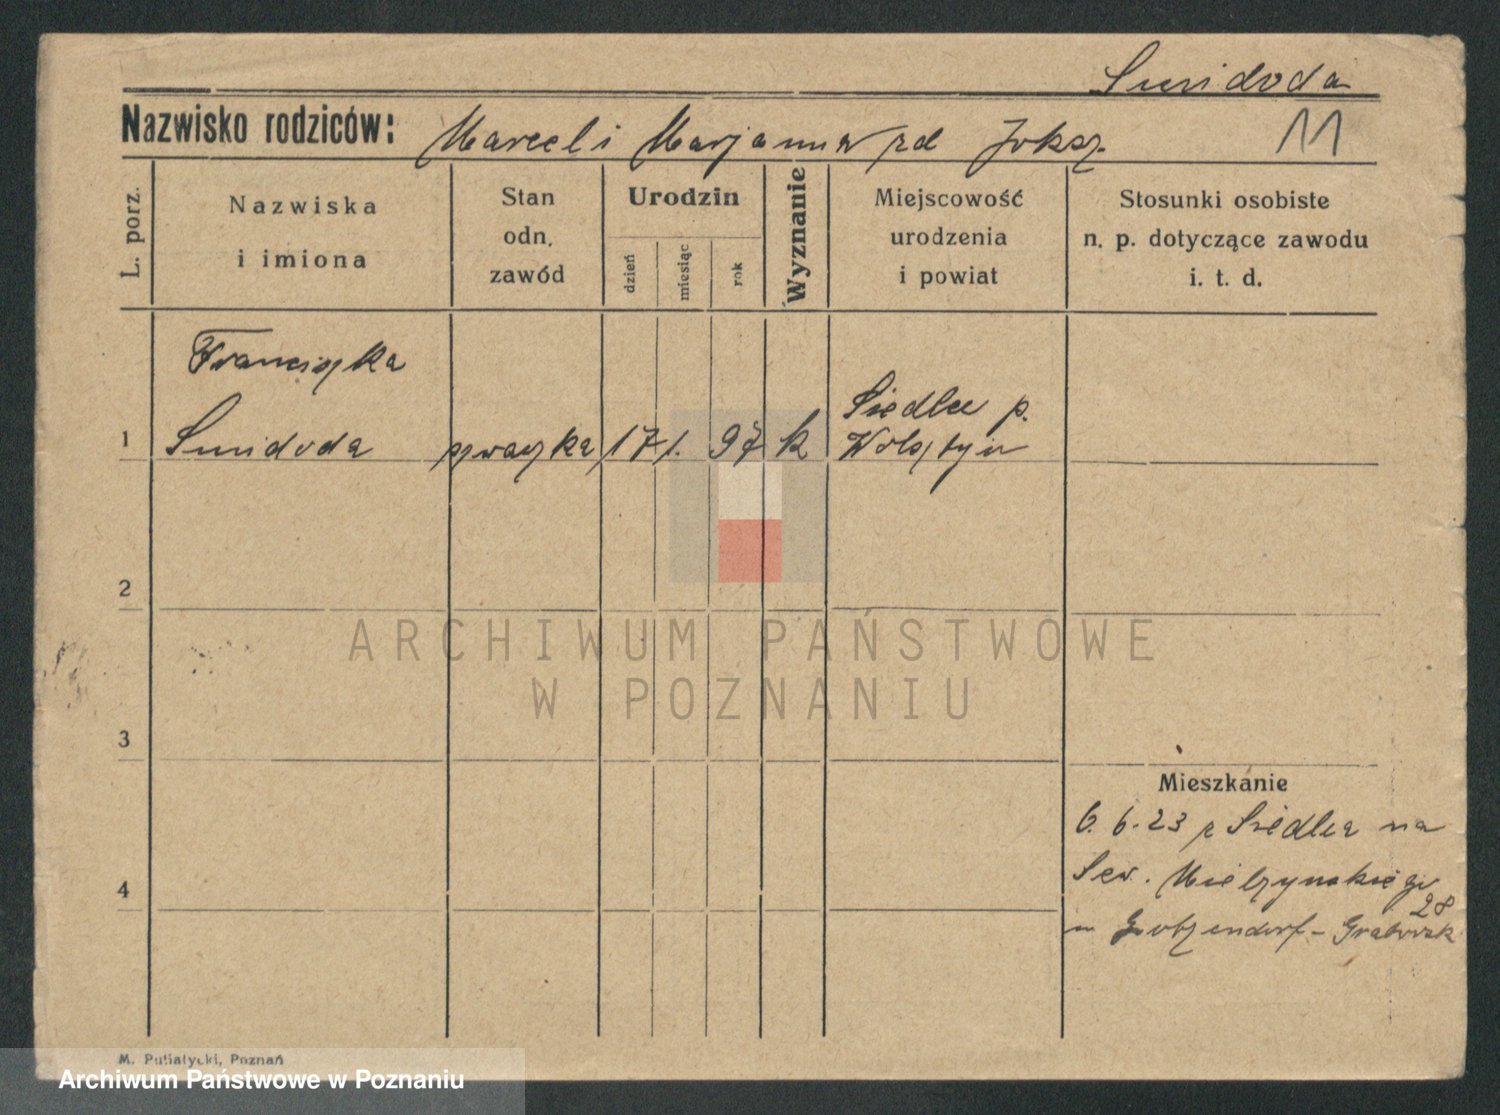 Smidoda
Nazwisko rodziców: Marceli Marjanna zd Joksz
11
L. porz.
Nazwiska
i imiona
Stan
odn.
zawód
Urodzin
dzień
miesiąc
rok
Wyznanie
Miejscowość
urodzenia
i powiat
Stosunki osobiste
n. p. dotyczące zawodu
i. t. d.
Franciszka
1 Smidoda szwaczka 17 1. 97 k Siedlec p.
Wolsztyn
2
3
4
Mieszkanie
6. 6. 23 z Siedlca na
Sew. Mielżyńskiego
28
u Gotzendorf-Grabowsk
M. Putiatycki, Poznań
ARCHIWUM PAŃSTWOWE
W POZNANIU
Archiwum Państwowe w Poznaniu